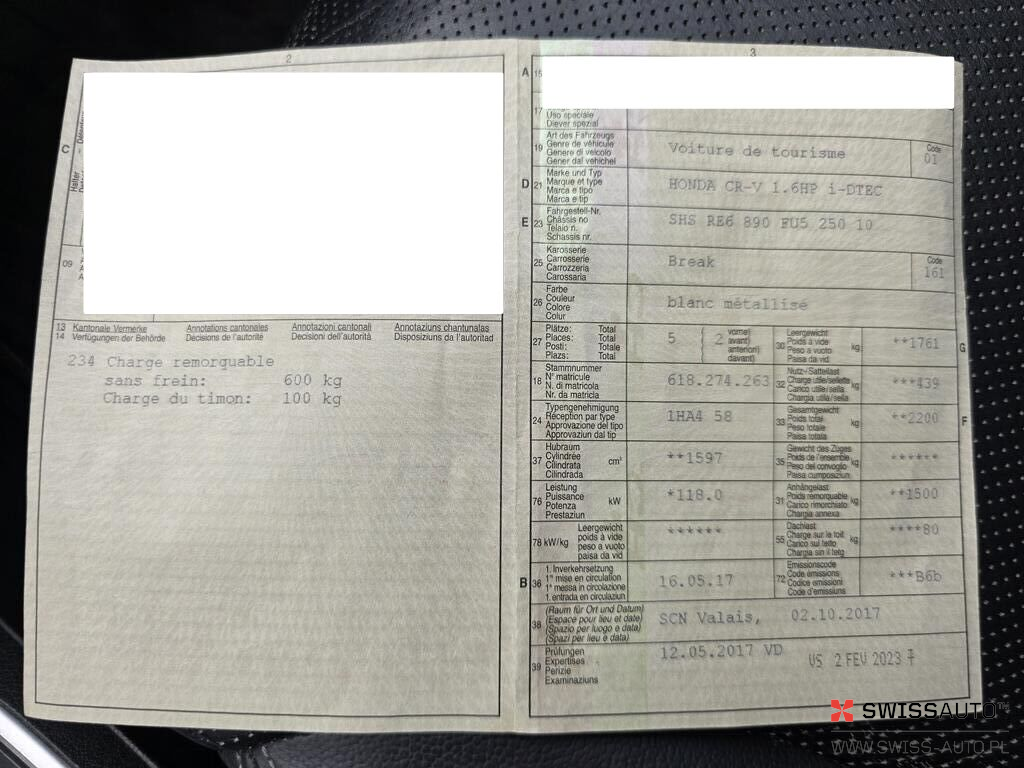 2
C
Halter
09
13 Kantonale Vermerke Annotations cantonales Annotazioni cantonali Annotaziuns chantunalas
14 Verfügungen der Behörde Décisions de l'autorité Decisioni dell'autorità Disposiziuns da l'autoritad
234 Charge remorquable
sans frein: 600 kg
Charge du timon: 100 kg
3
A 15
17
Uso speciale
Diever spezial
19 Art des Fahrzeugs
Genre de véhicule
Genere di veicolo
Gener dal vehichel
Voiture de tourisme
Code
01
D 21 Marke und Typ
Marque et type
Marca e tipo
Marca e tip
HONDA CR-V 1.6HP i-DTEC
E 23 Fahrgestell-Nr.
Châssis no
Telaio n.
Schassis nr.
SHS RE6 890 FU5 250 10
25 Karosserie
Carrosserie
Carrozzeria
Carossaria
Break
Code
161
26 Farbe
Couleur
Colore
Colur
blanc métallisé
27 Plätze: Total
Places: Total
Posti: Totale
Plazs: Total
5 ( 2 vorne)
avant)
anteriori)
davant)
30 Leergewicht
Poids à vide
Peso a vuoto
Paisa da vid
kg
**1761
G
18 Stammnummer
N° matricule
N. di matricola
Nr. da matricla
618.274.263
32 Nutz-/Sattellast
Charge utile/sellette
Carico utile/sella
Chargia utila/sella
kg
***439
24 Typengenehmigung
Réception par type
Approvazione del tipo
Approvaziun dal tip
1HA4 58
33 Gesamtgewicht
Poids total
Peso totale
Paisa totala
kg
**2200
F
37 Hubraum
Cylindrée
Cilindrata
Cilindrada
cm³
**1597
35 Gewicht des Zuges
Poids de l'ensemble
Peso del convoglio
Paisa cumposiziun
kg
******
76 Leistung
Puissance
Potenza
Prestaziun
kW
*118.0
31 Anhängelast
Poids remorquable
Carico rimorchiato
Chargia annexa
kg
**1500
78 kW/kg Leergewicht
poids à vide
peso a vuoto
paisa da vid
******
55 Dachlast
Charge sur le toit
Carico sul tetto
Chargia sin il tetg
kg
****80
B 36 1. Inverkehrsetzung
1re mise en circulation
1a messa in circolazione
1. entrada en circulaziun
16.05.17
72 Emissionscode
Code émissions
Codice emissioni
Code d'emissiuns
***B6b
38 (Raum für Ort und Datum)
(Espace pour lieu et date)
(Spazio per luogo e data)
(Spazi per lieu e data)
SCN Valais, 02.10.2017
39 Prüfungen
Expertises
Perizie
Examinaziuns
12.05.2017 VD VS 2 FEV 2023
SWISSAUTO
WWW.SWISS-AUTO.PL